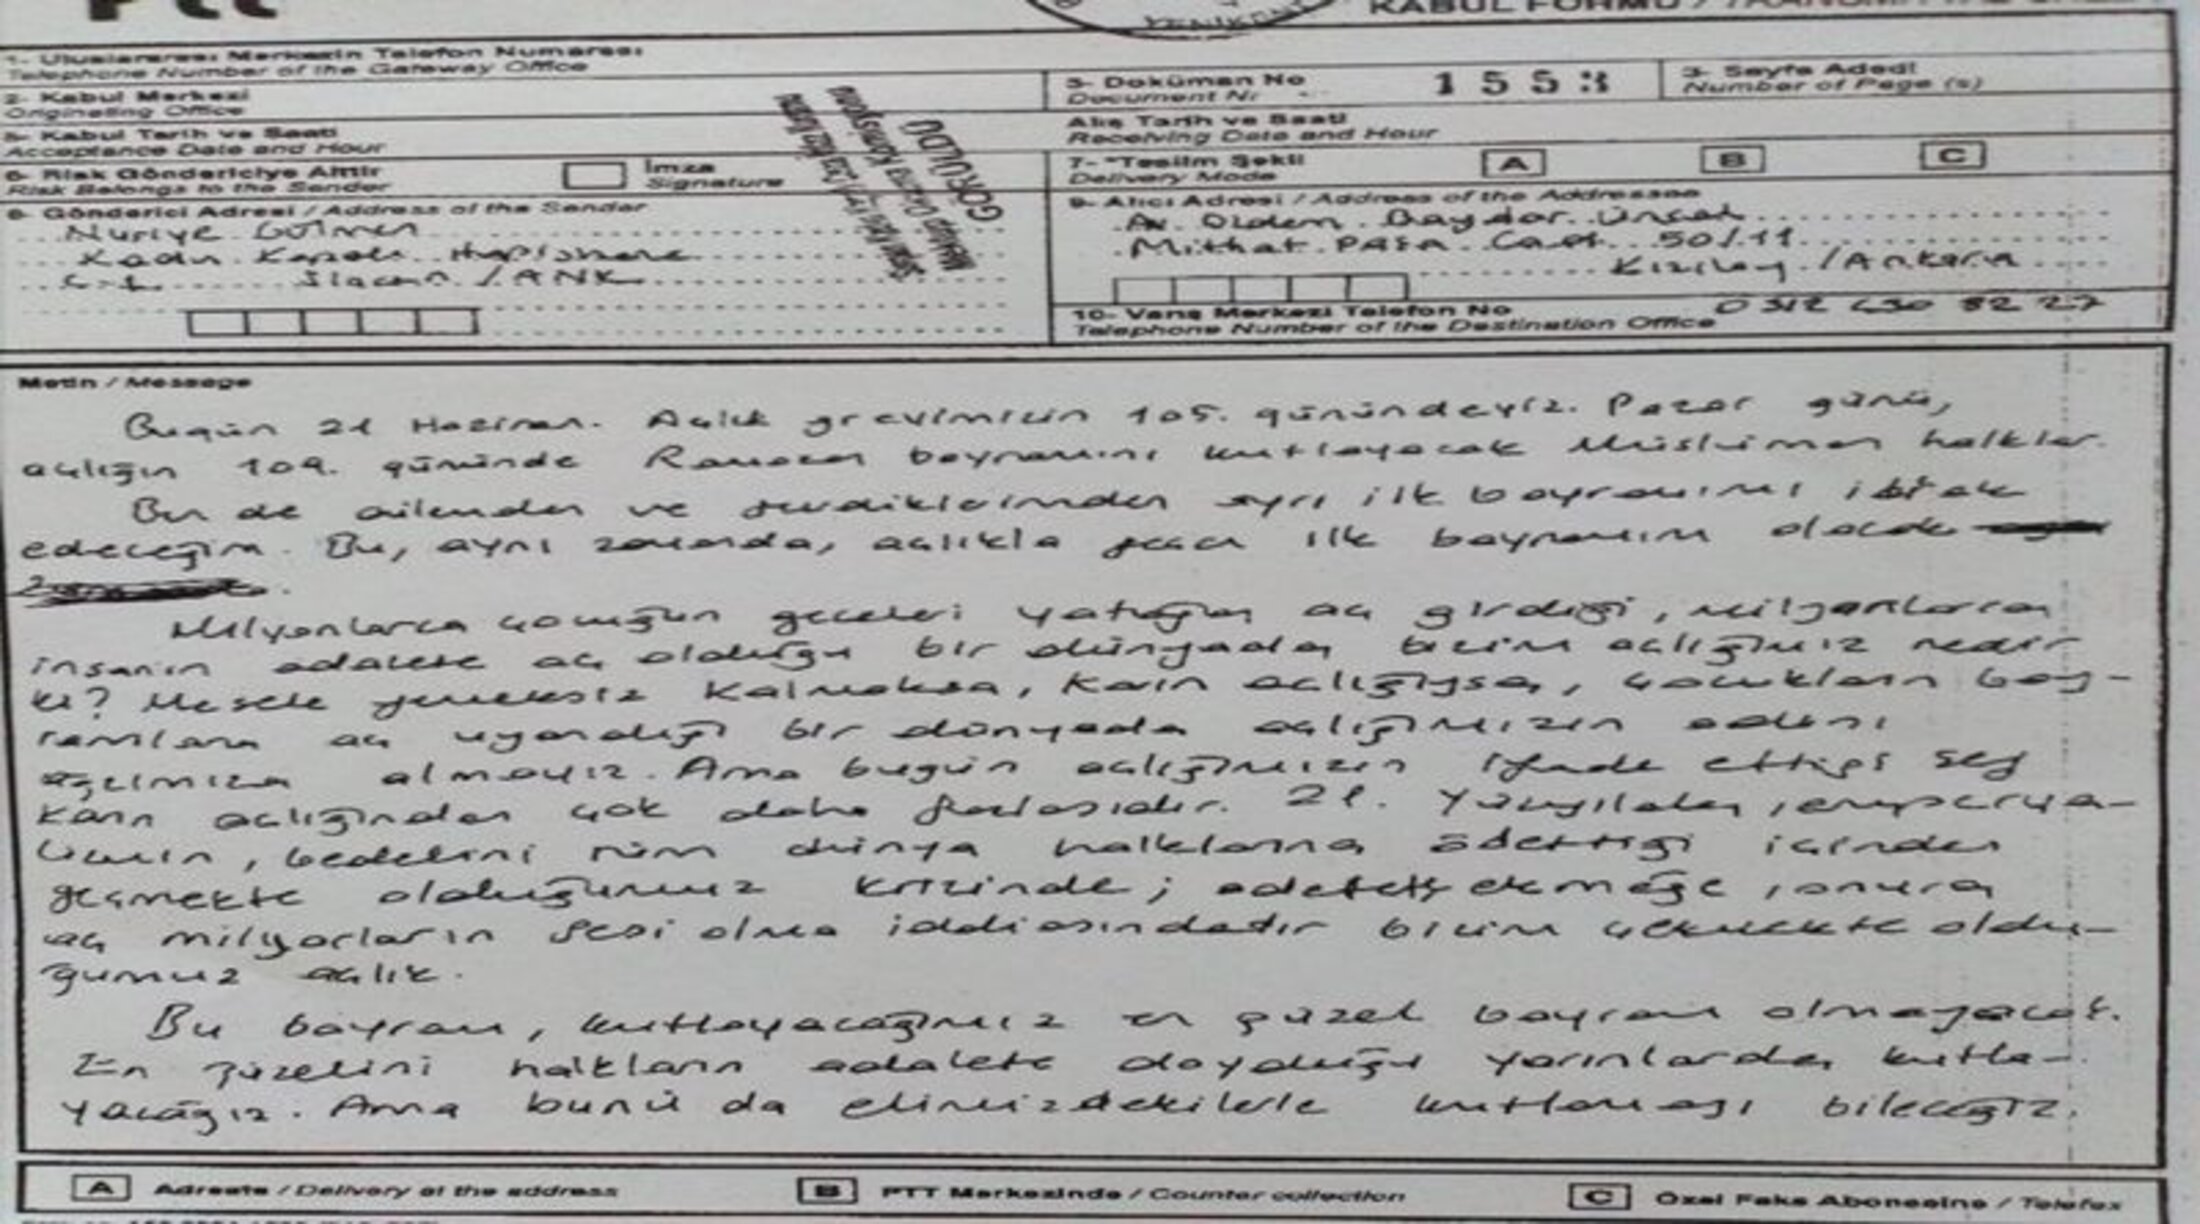 Ptt
YENİKENT
KABUL FORMU /
1- Uluslararası Merkezin Telefon Numarası
Telephone Number of the Gateway Office
2- Kabul Merkezi
Originating Office
3- Doküman No 1553
Document Nr
3- Sayfa Adedi
Number of Page (s)
5- Kabul Tarih ve Saati
Acceptance Date and Hour
Alış Tarih ve Saati
Receiving Date and Hour
6- Risk Göndericiye Aittir
Risk Belongs to the Sender
İmza
Signature
7- *Teslim Şekli
Delivery Mode
A B C
8- Gönderici Adresi / Address of the Sender
Nuriye Gülmen
Kadın Kapalı Hapishane
C-1 Sincan / ANK
9- Alıcı Adresi / Address of the Addressee
Av. Didem Baydar Ünsal
Mithat Paşa Cad. 50/11
Kızılay / Ankara
10- Varış Merkezi Telefon No 0312 430 82 27
Telephone Number of the Destination Office
Mektup Okuma Komisyonu
GÖRÜLDÜ
Metin / Message
Bugün 21 Haziran. Açlık grevimizin 105. günündeyiz. Pazar günü,
açlığın 109. gününde Ramazan bayramını kutlayacak Müslüman halklar.
Ben de ailemden ve sevdiklerimden ayrı ilk bayramımı idrak
edeceğim. Bu, aynı zamanda, açlıkla geçen ilk bayramım olacak
Milyonlarca çocuğun geceleri yatağa aç girdiği, milyonlarca
insanın adalete aç olduğu bir dünyada bizim açlığımız nedir
ki? Mesele yemeksiz kalmaksa, karın açlığıysa, çocukların bay-
ramlara aç uyandığı bir dünyada açlığımızın adını
ağzımıza almayız. Ama bugün açlığımızın ifade ettiği şey
karın açlığından çok daha fazlasıdır. 21. Yüzyılda, emperya-
lizmin, bedelini tüm dünya halklarına ödettiği içinden
geçmekte olduğumuz krizinde; adalete, ekmeğe, onura
aç milyonların sesi olma iddiasındadır bizim çekmekte oldu-
ğumuz açlık.
Bu bayram, kutlayacağımız en güzel bayram olmayacak.
En güzelini halkların adalete doyduğu yarınlarda kutla-
yacağız. Ama bunu da elimizdekilerle kutlamayı bileceğiz.
A Adreste / Delivery at the address
B PTT Merkezinde / Counter collection
C Özel Faks Abonesine / Telefax